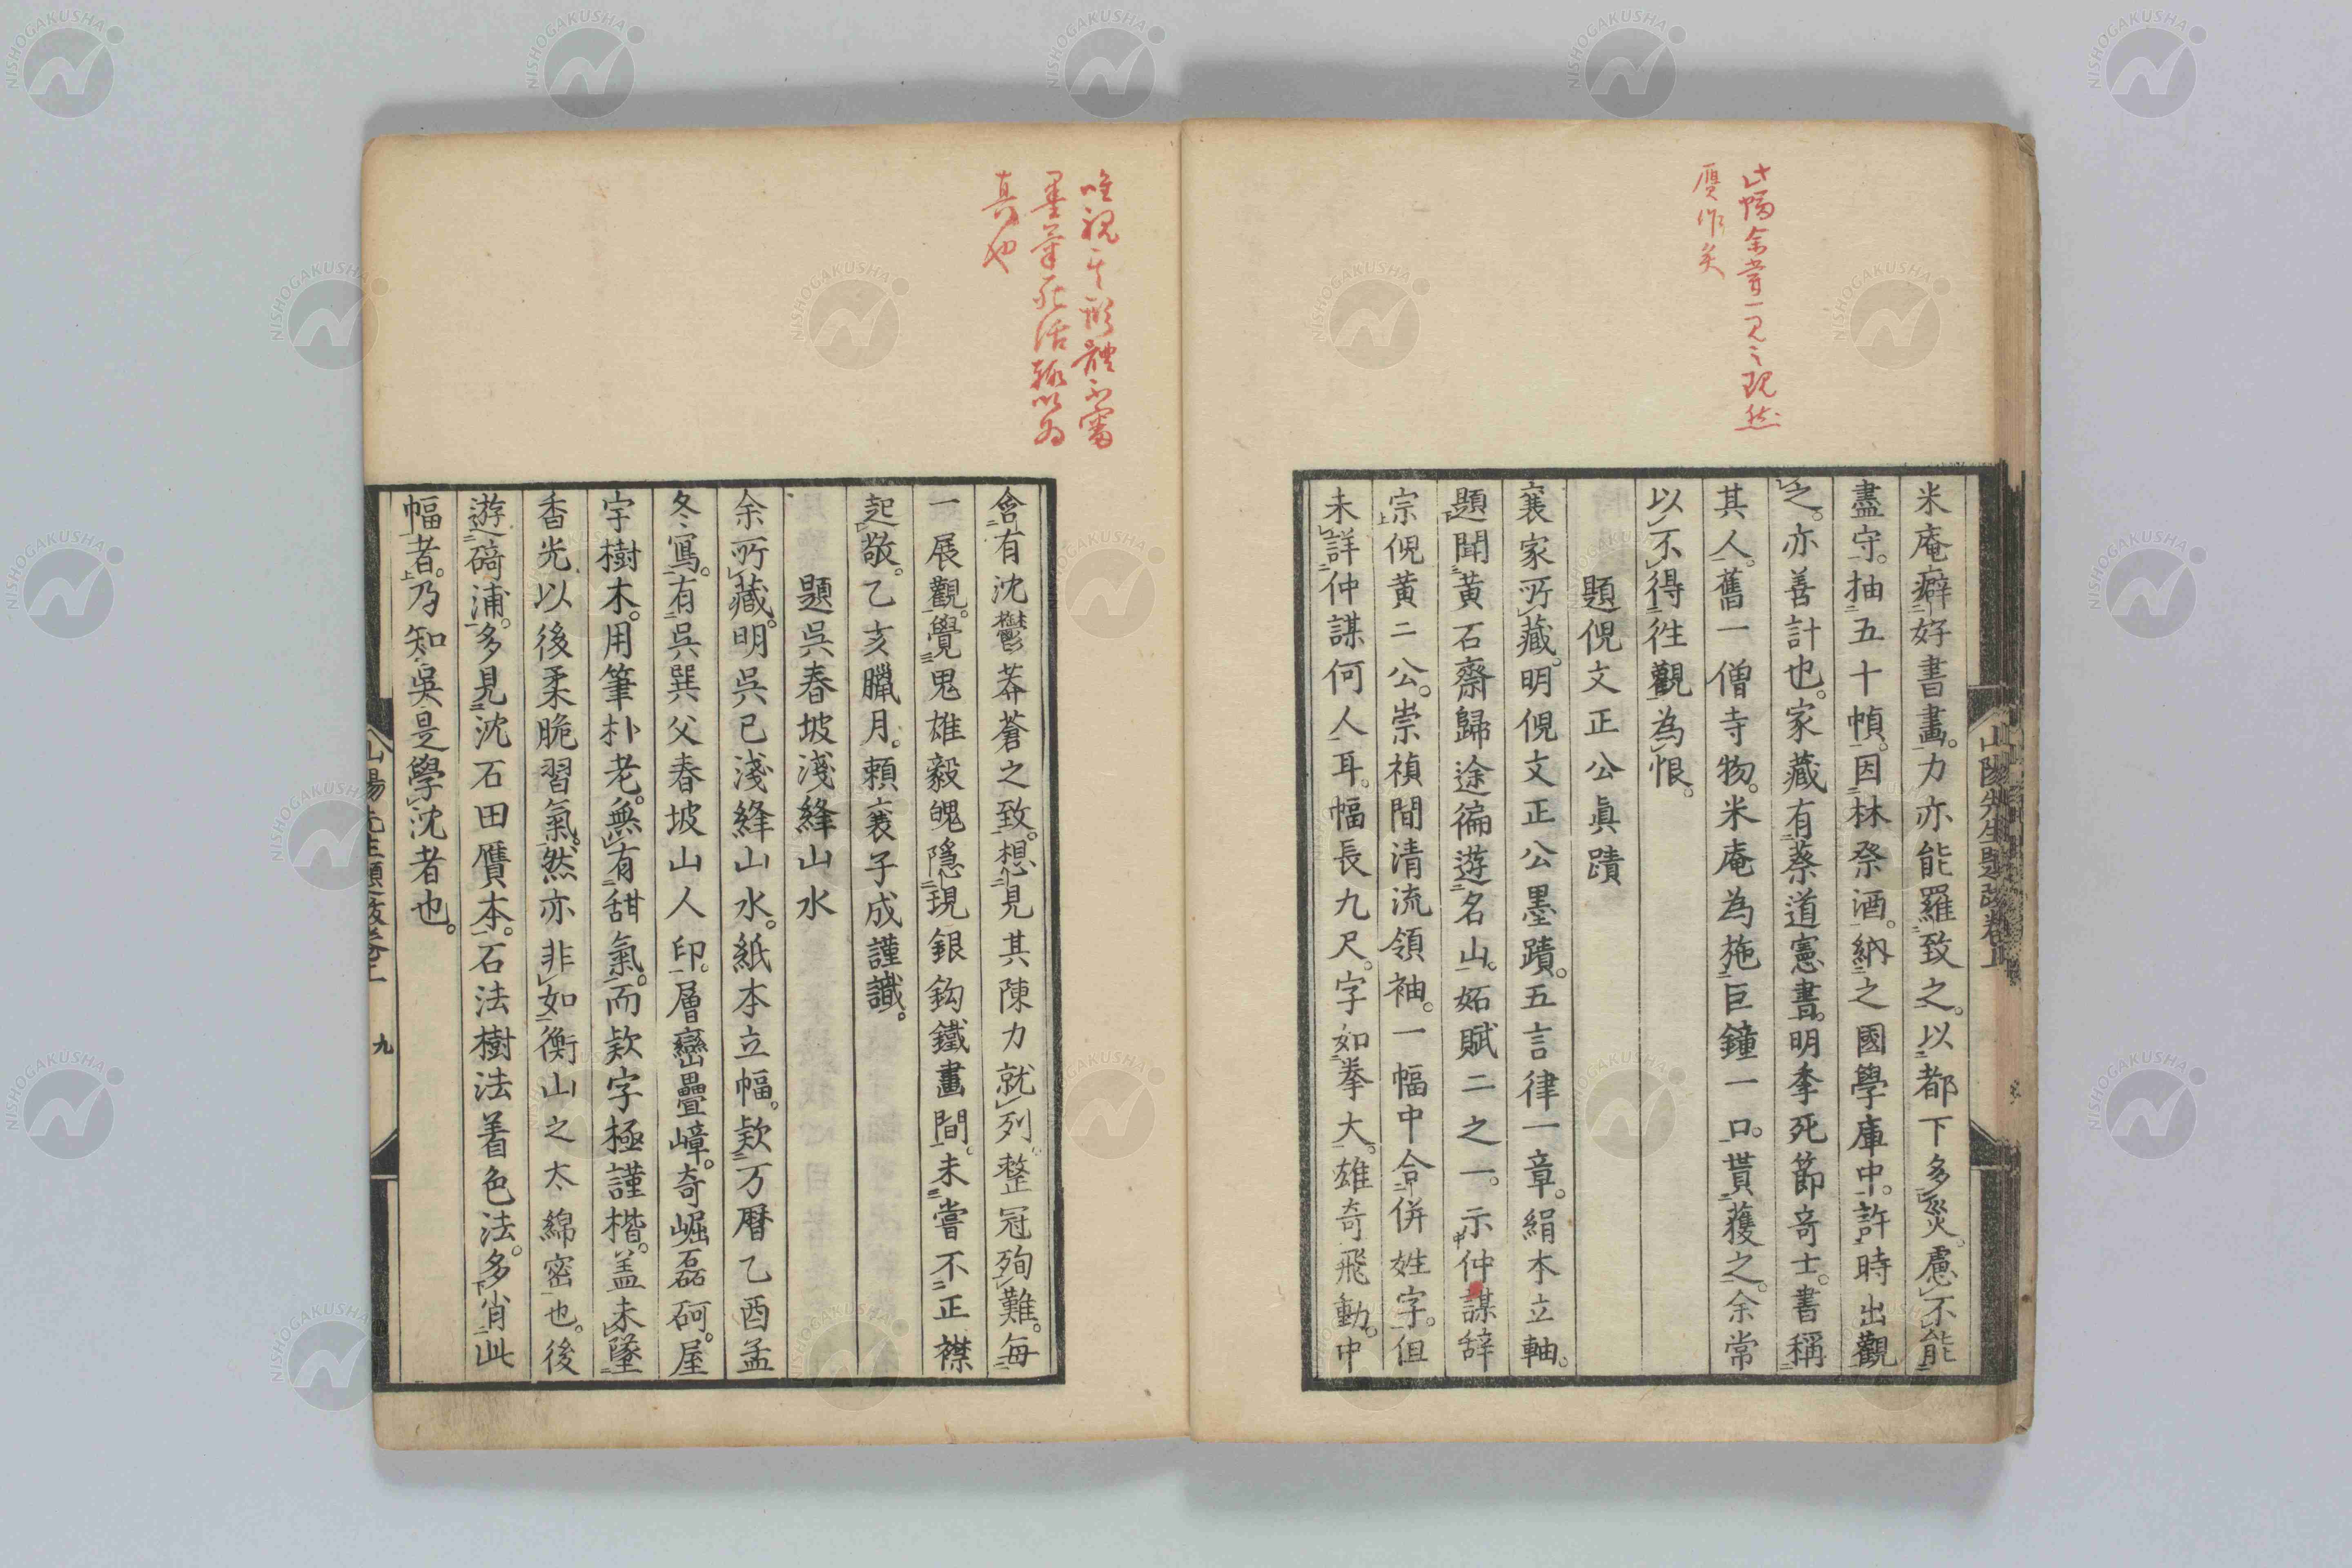 此幅余嘗一見之現然
贋作矣
米庵癖好書畫。力亦能羅致之。以都下多災。慮不能
盡守。抽五十幀。因林祭酒。納之國學庫中。許時出觀
之。亦善計也。家藏有蔡道憲書。明季死節奇士。書稱
其人。舊一僧寺物。米庵為施巨鐘一口。貰獲之。余常
以不得往觀為恨。
題倪文正公眞蹟
襄家所藏。明倪文正公墨蹟。五言律一章。絹本立軸。
題聞黄石齋歸途徧遊名山。妬賦二之一。示仲謀辞
宗倪黄二公。崇禎間清流領袖。一幅中合併姓字。但
未詳仲謀何人耳。幅長九尺。字如拳大。雄奇飛動。中
山陽先生題跋卷上
唯視其形體不審
墨筆死活輙以為
真也
含有沈鬱莽蒼之致。想見其陳力就列。整冠殉難。每
一展觀。覺鬼雄毅魄隱現銀鈎鐵畫間。未嘗不正襟
起敬。乙亥臘月。頼襄子成謹識。
題吳春坡淺絳山水
余所藏。明吳已淺絳山水。紙本立幅。欵万暦乙酉孟
冬寫。有吳巽父春坡山人印。層巒疊嶂。奇崛磊砢。屋
宇樹木。用筆朴老。無有甜氣。而欵字極謹楷。盖未墜
香光以後柔脆習氣。然亦非如衡山之太綿密也。後
遊碕浦。多見沈石田贋本。石法樹法着色法。多肖此
幅者。乃知吳是學沈者也。
山陽先生題跋卷上 九
NISHOGAKUSHA